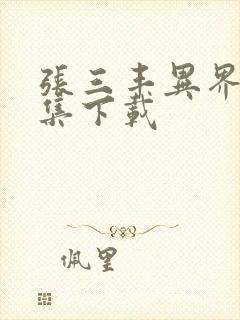 張三丰異界
集下載
佩里